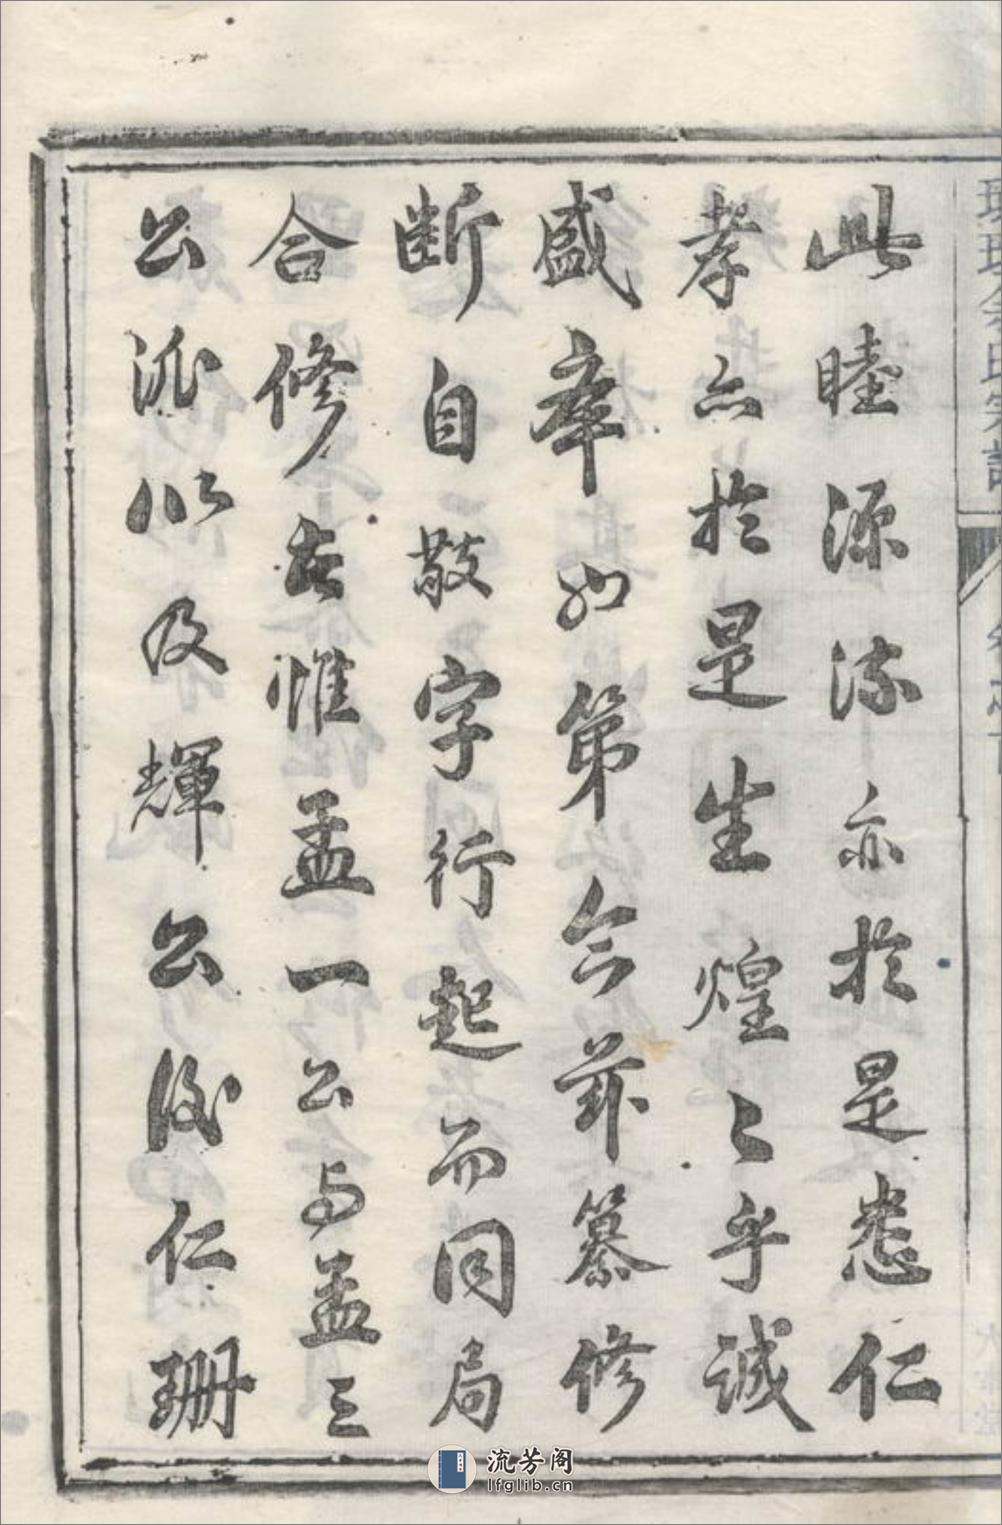 此睦源流亦於是悉仁
孝亦於是生煌々乎誠
盛舉也第今茲纂修
断自敬字行起而同局
合修者惟孟一公与孟三
公派以及輝公後仁珊
流芳阁
lfglib.cn